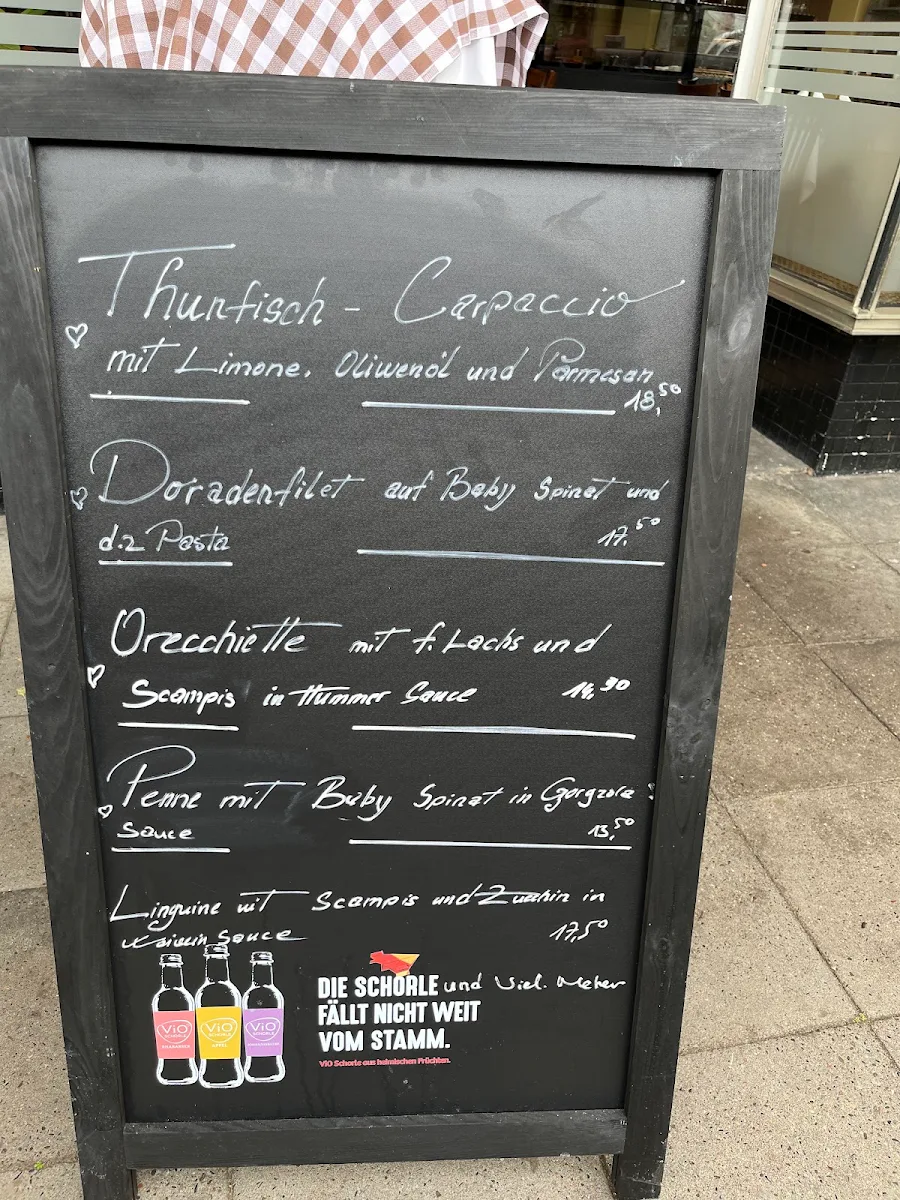 Thunfisch - Carpaccio
mit Limone, Oliwenöl und Parmesan
18,50
Doradenfilet auf Baby Spinat und
d.z Pasta 17,50
Orecchiette mit f. Lachs und
Scampis in Hummer Sauce 14,90
Penne mit Baby Spinat in Gorgzola
Sauce 13,50
Linguine mit Scampis und Zucchin in
Sauce 17,50
DIE SCHORLE und viel. Meher
FÄLLT NICHT WEIT
VOM STAMM.
ViO Schorle aus heimischen Früchten.
ViO ViO ViO
SCHORLE SCHORLE SCHORLE